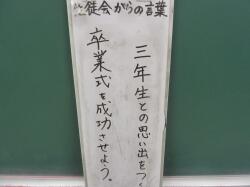 生徒会からの言葉
三年生との思い出をつ
卒業式を成功させよう。